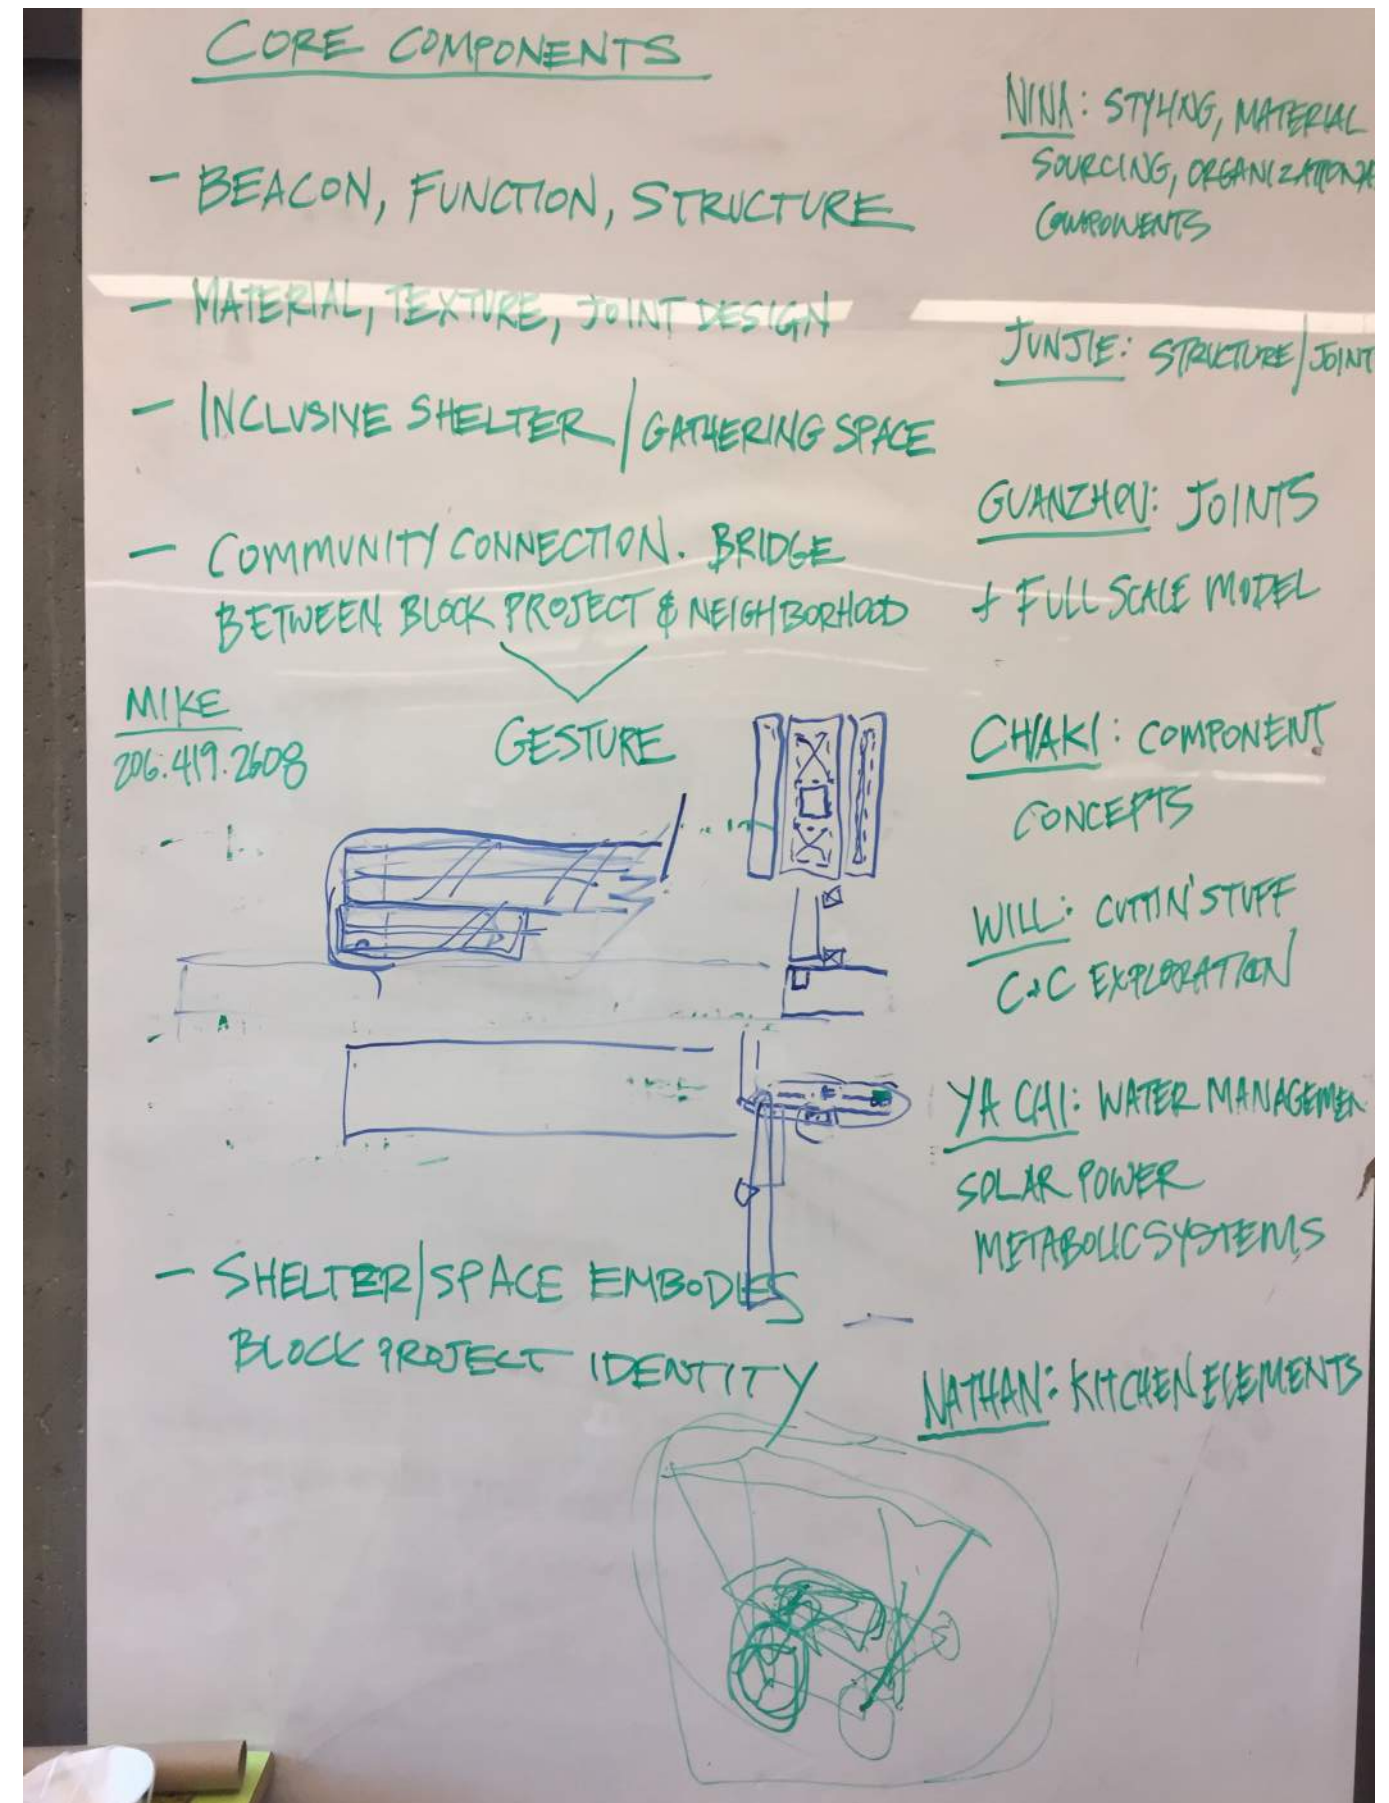 CORE COMPONENTS
- BEACON, FUNCTION, STRUCTURE
- MATERIAL, TEXTURE, JOINT DESIGN
- INCLUSIVE SHELTER / GATHERING SPACE
- COMMUNITY CONNECTION. BRIDGE
BETWEEN BLOCK PROJECT & NEIGHBORHOOD
GESTURE
MIKE
206.419.2608
- SHELTER/SPACE EMBODIES
BLOCK PROJECT IDENTITY
NINA: STYLING, MATERIAL
SOURCING, ORGANIZATIONA
COMPONENTS
JUNJIE: STRUCTURE/JOINT
GUANZHOU: JOINTS
+ FULL SCALE MODEL
CHIAKI: COMPONENT
CONCEPTS
WILL: CUTTIN' STUFF
EXPLORATION
YA CHI: WATER MANAGEMEN
SOLAR POWER
METABOLIC SYSTEMS
NATHAN: KITCHEN ELEMENTS